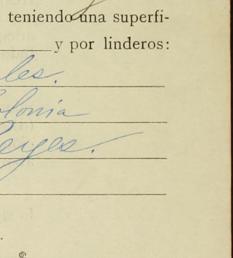 teniendo una superfi-
y por linderos:
les.
olonia
eyes.